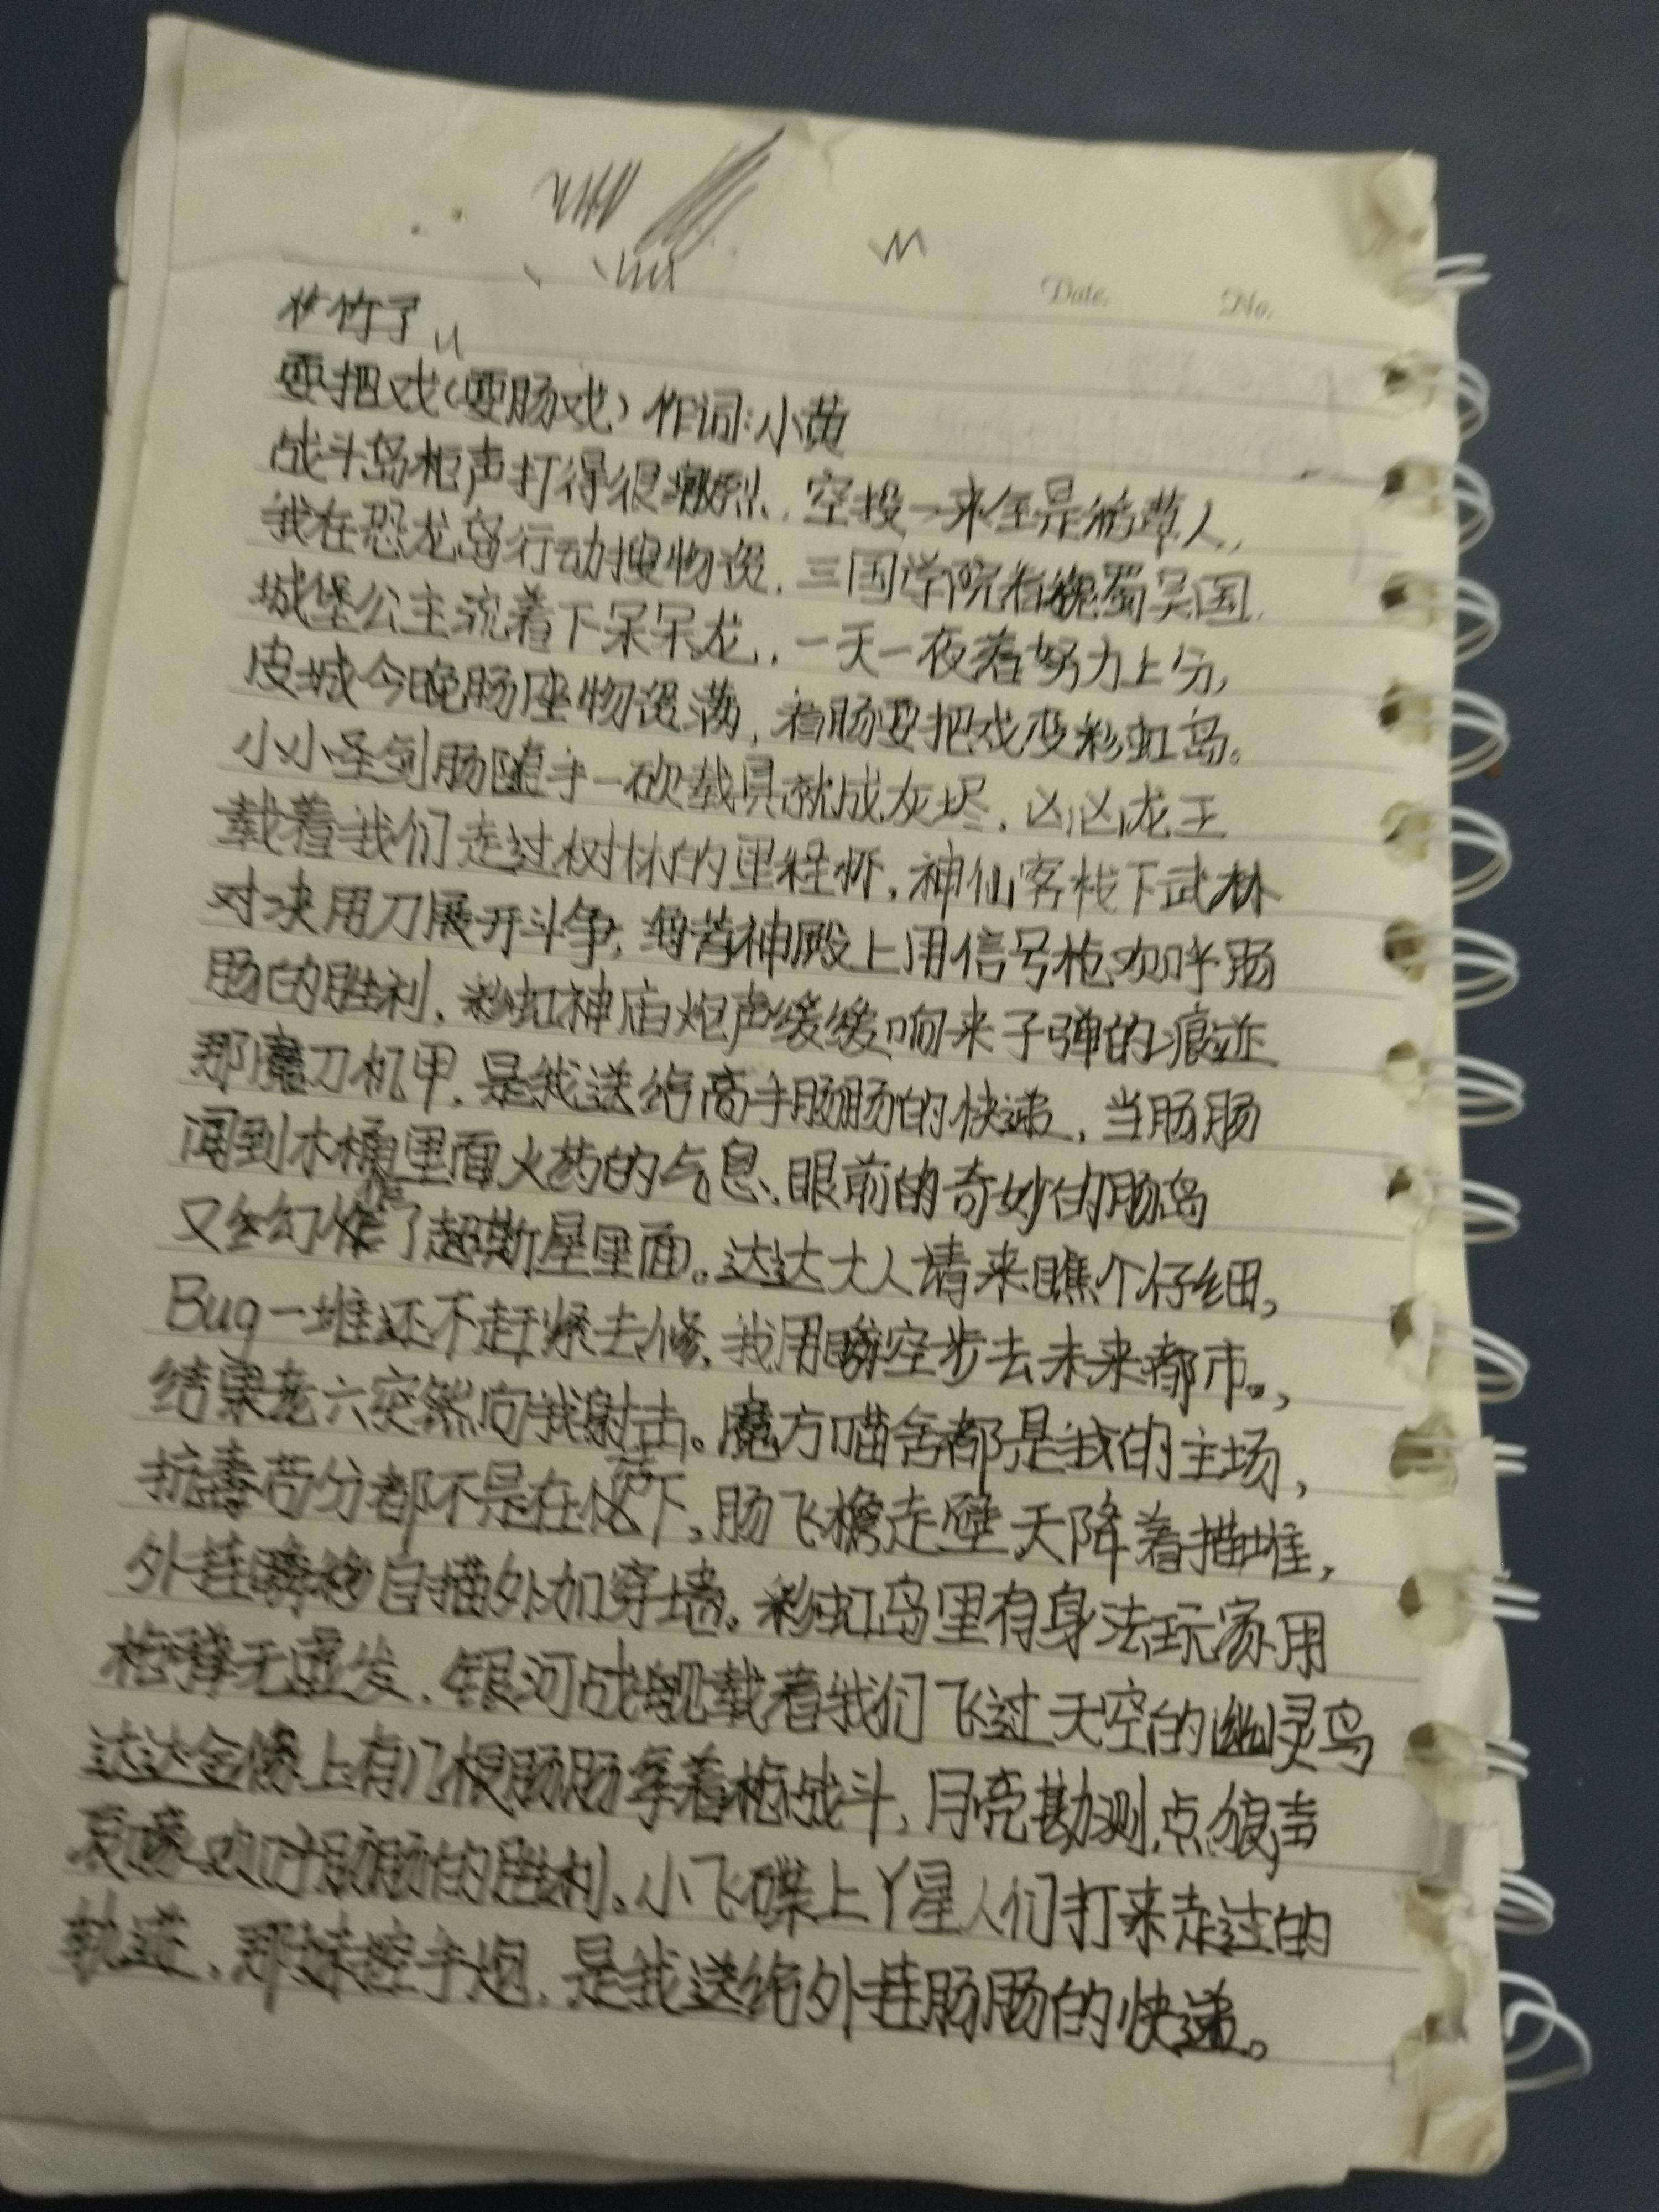 Date. No.
竹子
耍把戏(耍肠戏)作词:小黄
战斗岛枪声打得很激烈,空投一来全是稻草人,
我在恐龙岛行动搜物资,三国学院有魏蜀吴国,
城堡公主流着下呆呆龙,一天一夜着努力上分,
废城今晚肠座物资满,着肠耍把戏变彩虹岛。
小小圣剑肠随手一砍载具就成灰烬,凶凶龙王
载着我们走过树林的里程杯,神仙客栈下武林
对决用刀展开斗争,神殿上用信号枪欢呼肠
肠的胜利,彩虹神庙炮声缓缓响来子弹的痕迹
那魔刀机甲,是我送给高手肠肠的快递,当肠肠
闻到木桶里面火药的气息,眼前的奇妙的肠岛
又梦幻了超斯屋里面。达达大人请来瞧个仔细,
Bug一堆还不赶紧去修,我用踏空步去未来都市。,
结果老六突然向我射击。魔方喵舍都是我的主场,
抗毒苟分都不是在话下,肠飞檐走壁天降着描堆,
外挂瞬移自描外加穿墙。彩虹岛里有身法玩家用
枪弹无虚发,银河战舰载着我们飞过天空的幽灵鸟
达达金像上有几根肠肠拿着枪战斗,月亮勘测点狼声
哀嚎欢呼肠肠的胜利。小飞碟上丫星人们打来走过的
轨迹,那控手炮,是我送给外挂肠肠的快递。